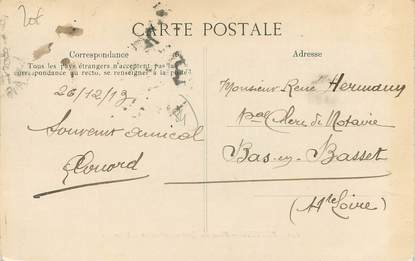 CARTE POSTALE
Correspondance
Tous les pays étrangers n'acceptent pas la
correspondance au recto, se renseigner à la poste
26/12/13
Souvenir amical
Adresse
Monsieur René Hermann
pal Clerc de Notaire
Bas-en-Basset
(Hte Loire)